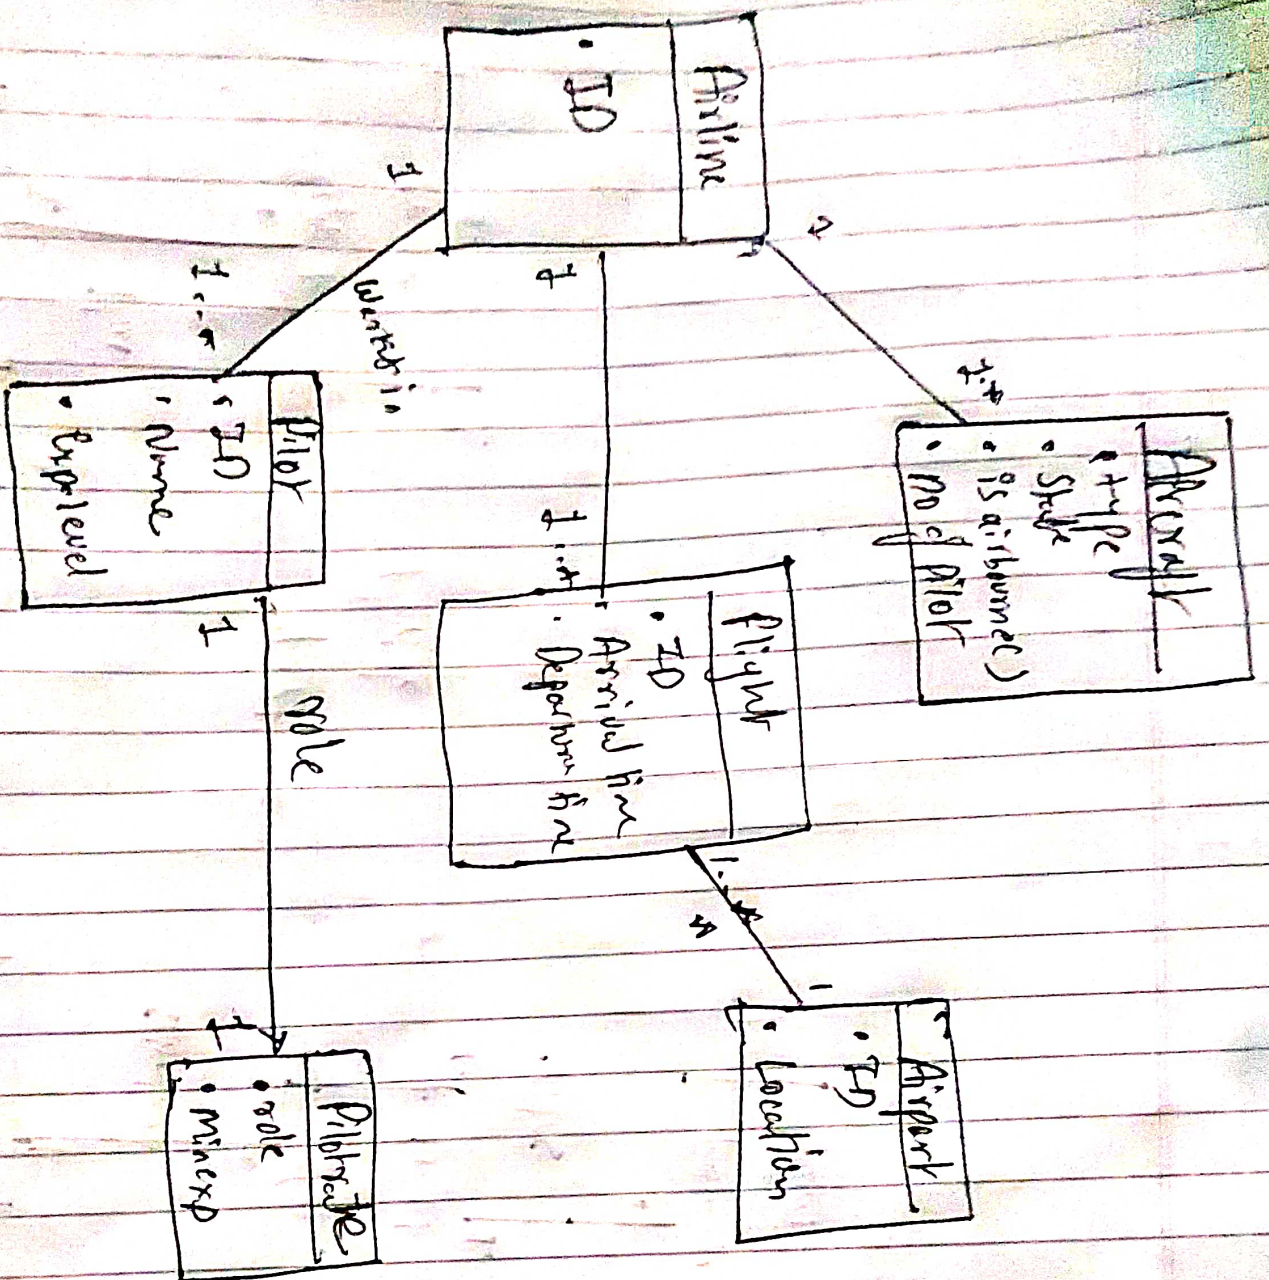 Airline
• ID
1
1
1..*
works in
1..*
1..*
Aircraft
• type
• State
• is airbourne()
• no of pilot
Pilot
• ID
• Name
• Exp level
1
role
1
flight
• ID
• Arrival time
• Departure time
1..*
*
1
Airport
• ID
• Location
• role
• minexp